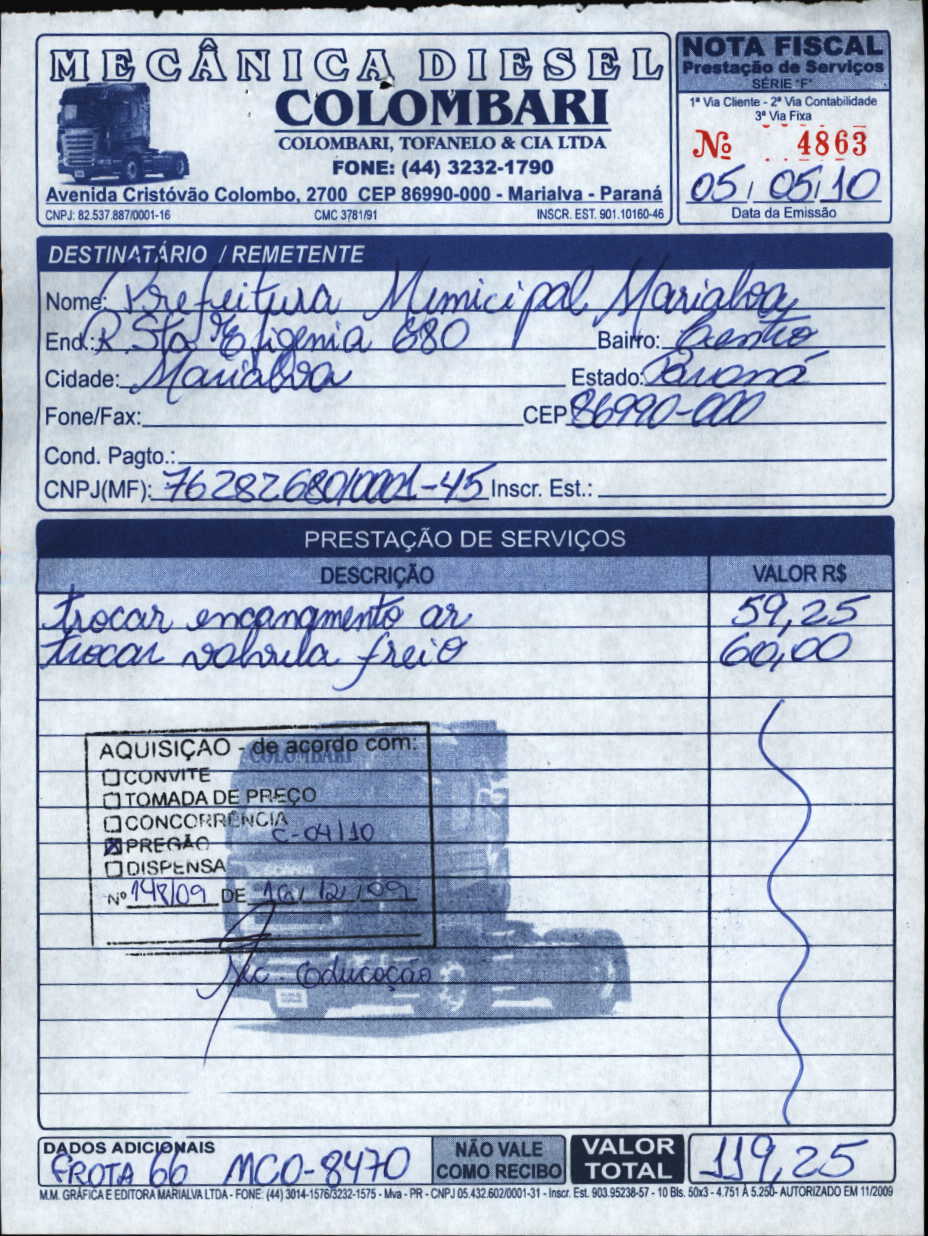 MECÂNICA DIESEL
COLOMBARI
COLOMBARI, TOFANELO & CIA LTDA
FONE: (44) 3232-1790
Avenida Cristóvão Colombo, 2700 CEP 86990-000 - Marialva - Paraná
CNPJ: 82.537.887/0001-16 CMC 3781/91 INSCR. EST. 901.10160-46
NOTA FISCAL
Prestação de Serviços
SÉRIE "F"
1ª Via Cliente - 2ª Via Contabilidade
3ª Via Fixa
Nº 4863
05/05/10
Data da Emissão
DESTINATÁRIO / REMETENTE
Nome: Prefeitura Municipal Marialva
End.: R Sta Efigenia 680 Bairro: Centro
Cidade: Marialva Estado: Paraná
Fone/Fax: CEP 86990-000
Cond. Pagto.:
CNPJ(MF): 76282680/0001-45 Inscr. Est.:
PRESTAÇÃO DE SERVIÇOS
DESCRIÇÃO VALOR R$
trocar encanamento ar 59,25
trocar valvula freio 60,00
AQUISIÇÃO - de acordo com:
COLOMBARI
CONVITE
TOMADA DE PREÇO
CONCORRÊNCIA
C-04/10
PREGÃO
DISPENSA
SCANIA
Nº 148/09 DE 16/12/09
Sec. Educação
DADOS ADICIONAIS
FROTA 66 MCO-8470
NÃO VALE
COMO RECIBO
VALOR
TOTAL
119,25
M.M. GRÁFICA E EDITORA MARIALVA LTDA - FONE: (44) 3014-1576/3232-1575 - Mva - PR - CNPJ 05.432.602/0001-31 - Inscr. Est. 903.95238-57 - 10 Bls. 50x3 - 4.751 A 5.250- AUTORIZADO EM 11/2009